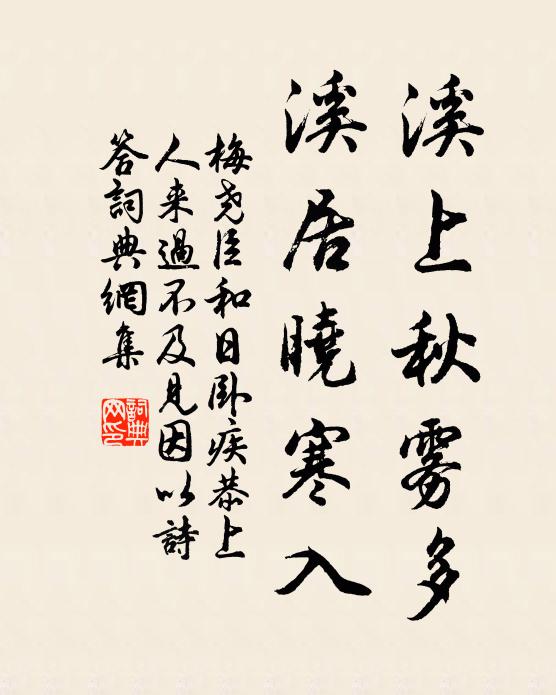 溪上秋雾多
溪居曉寒入
梅尧臣和日卧疾恭上
人来過不及見因以詩
答詞典網集
詞典
网印